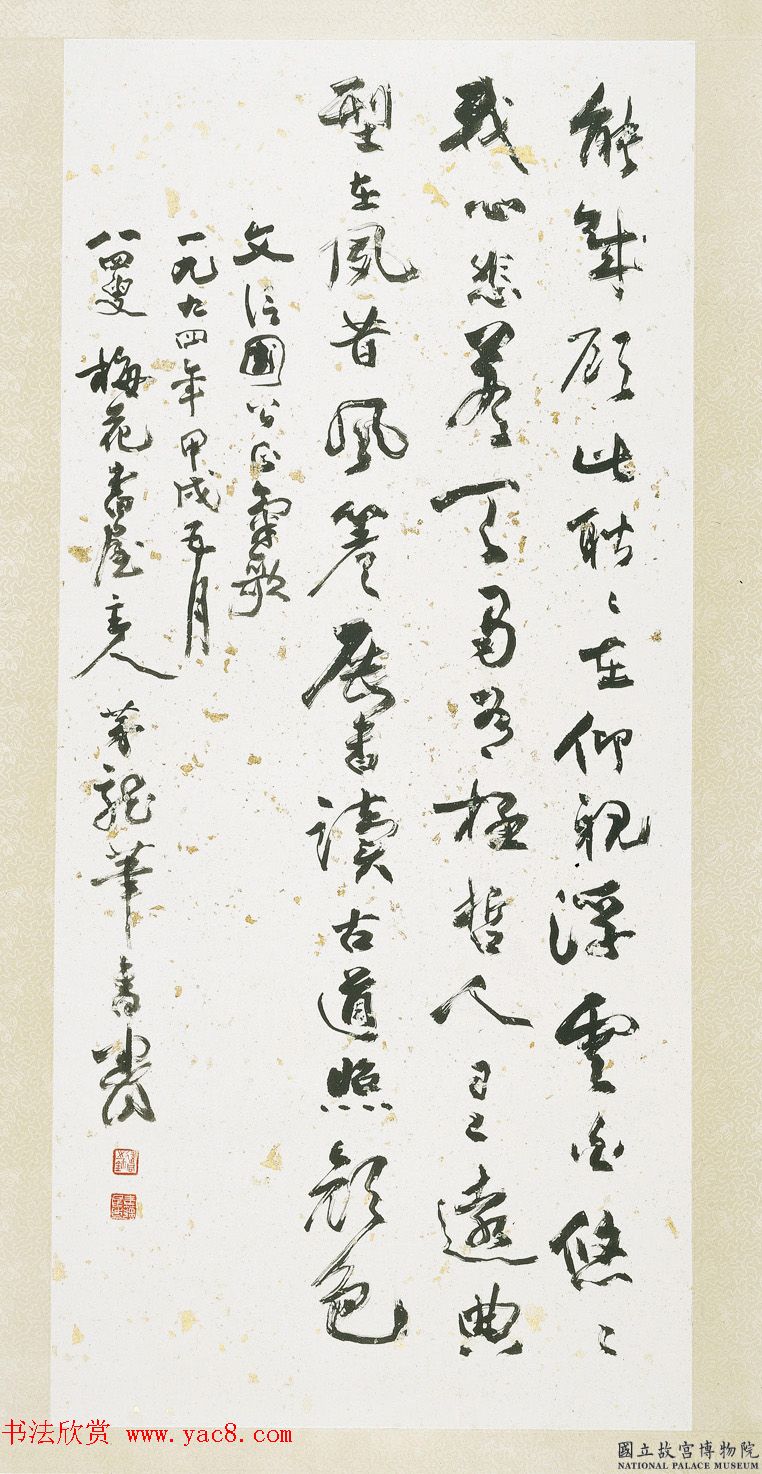 能賊顧此耿〻在仰視浮雲白悠〻
我心悲蒼天曷有極哲人日已遠典
型在夙昔風簷展書讀古道照顏色
文信國公正氣歌
一九九四年甲戌五月
八四叟梅花書屋主人茅龍筆書
书法欣赏 www.yac8.com
國立故宮博物院
NATIONAL PALACE MUSEUM